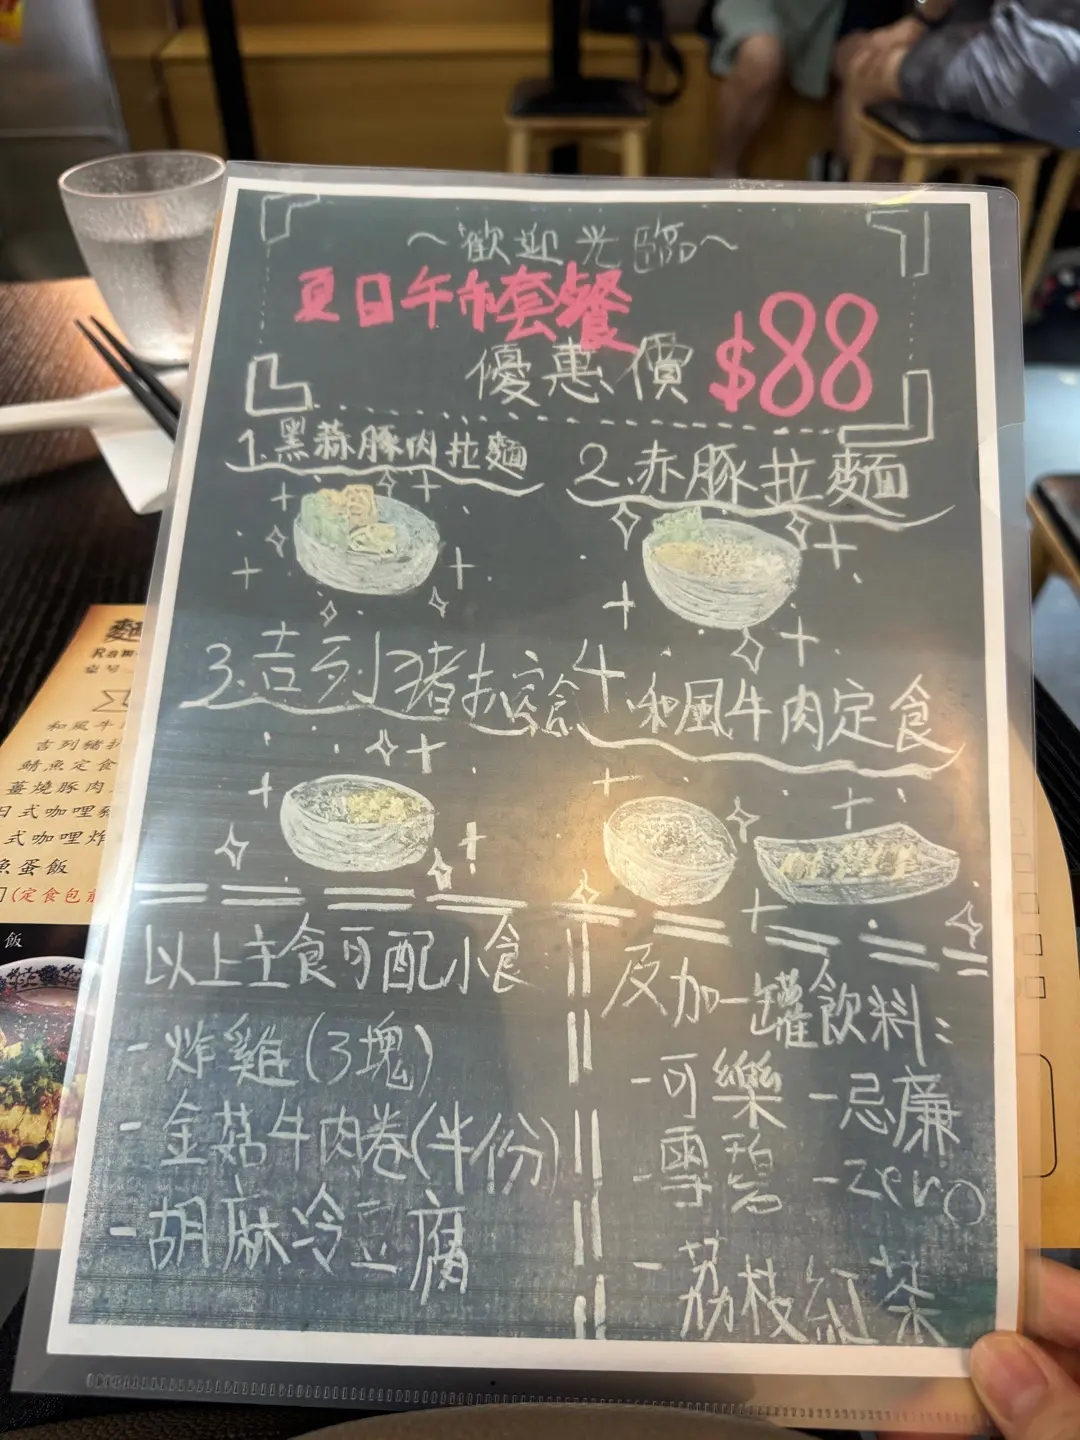 ~歡迎光臨~
夏日午市套餐
優惠價 $88
1.黑蒜豚肉拉麵
2.赤豚拉麵
3.吉列豬扒定食
4.和風牛肉定食
以上主食可配小食
-炸雞(3塊)
-金菇牛肉卷(半份)
-胡麻冷豆腐
及加一罐飲料:
-可樂
-忌廉
-雪碧
-zero
-荔枝紅茶
麵
和風牛
吉列豬扒
鯖魚定食
薑燒豚肉
日式咖哩豬
式咖哩炸
魚蛋飯
(定食包前
飯